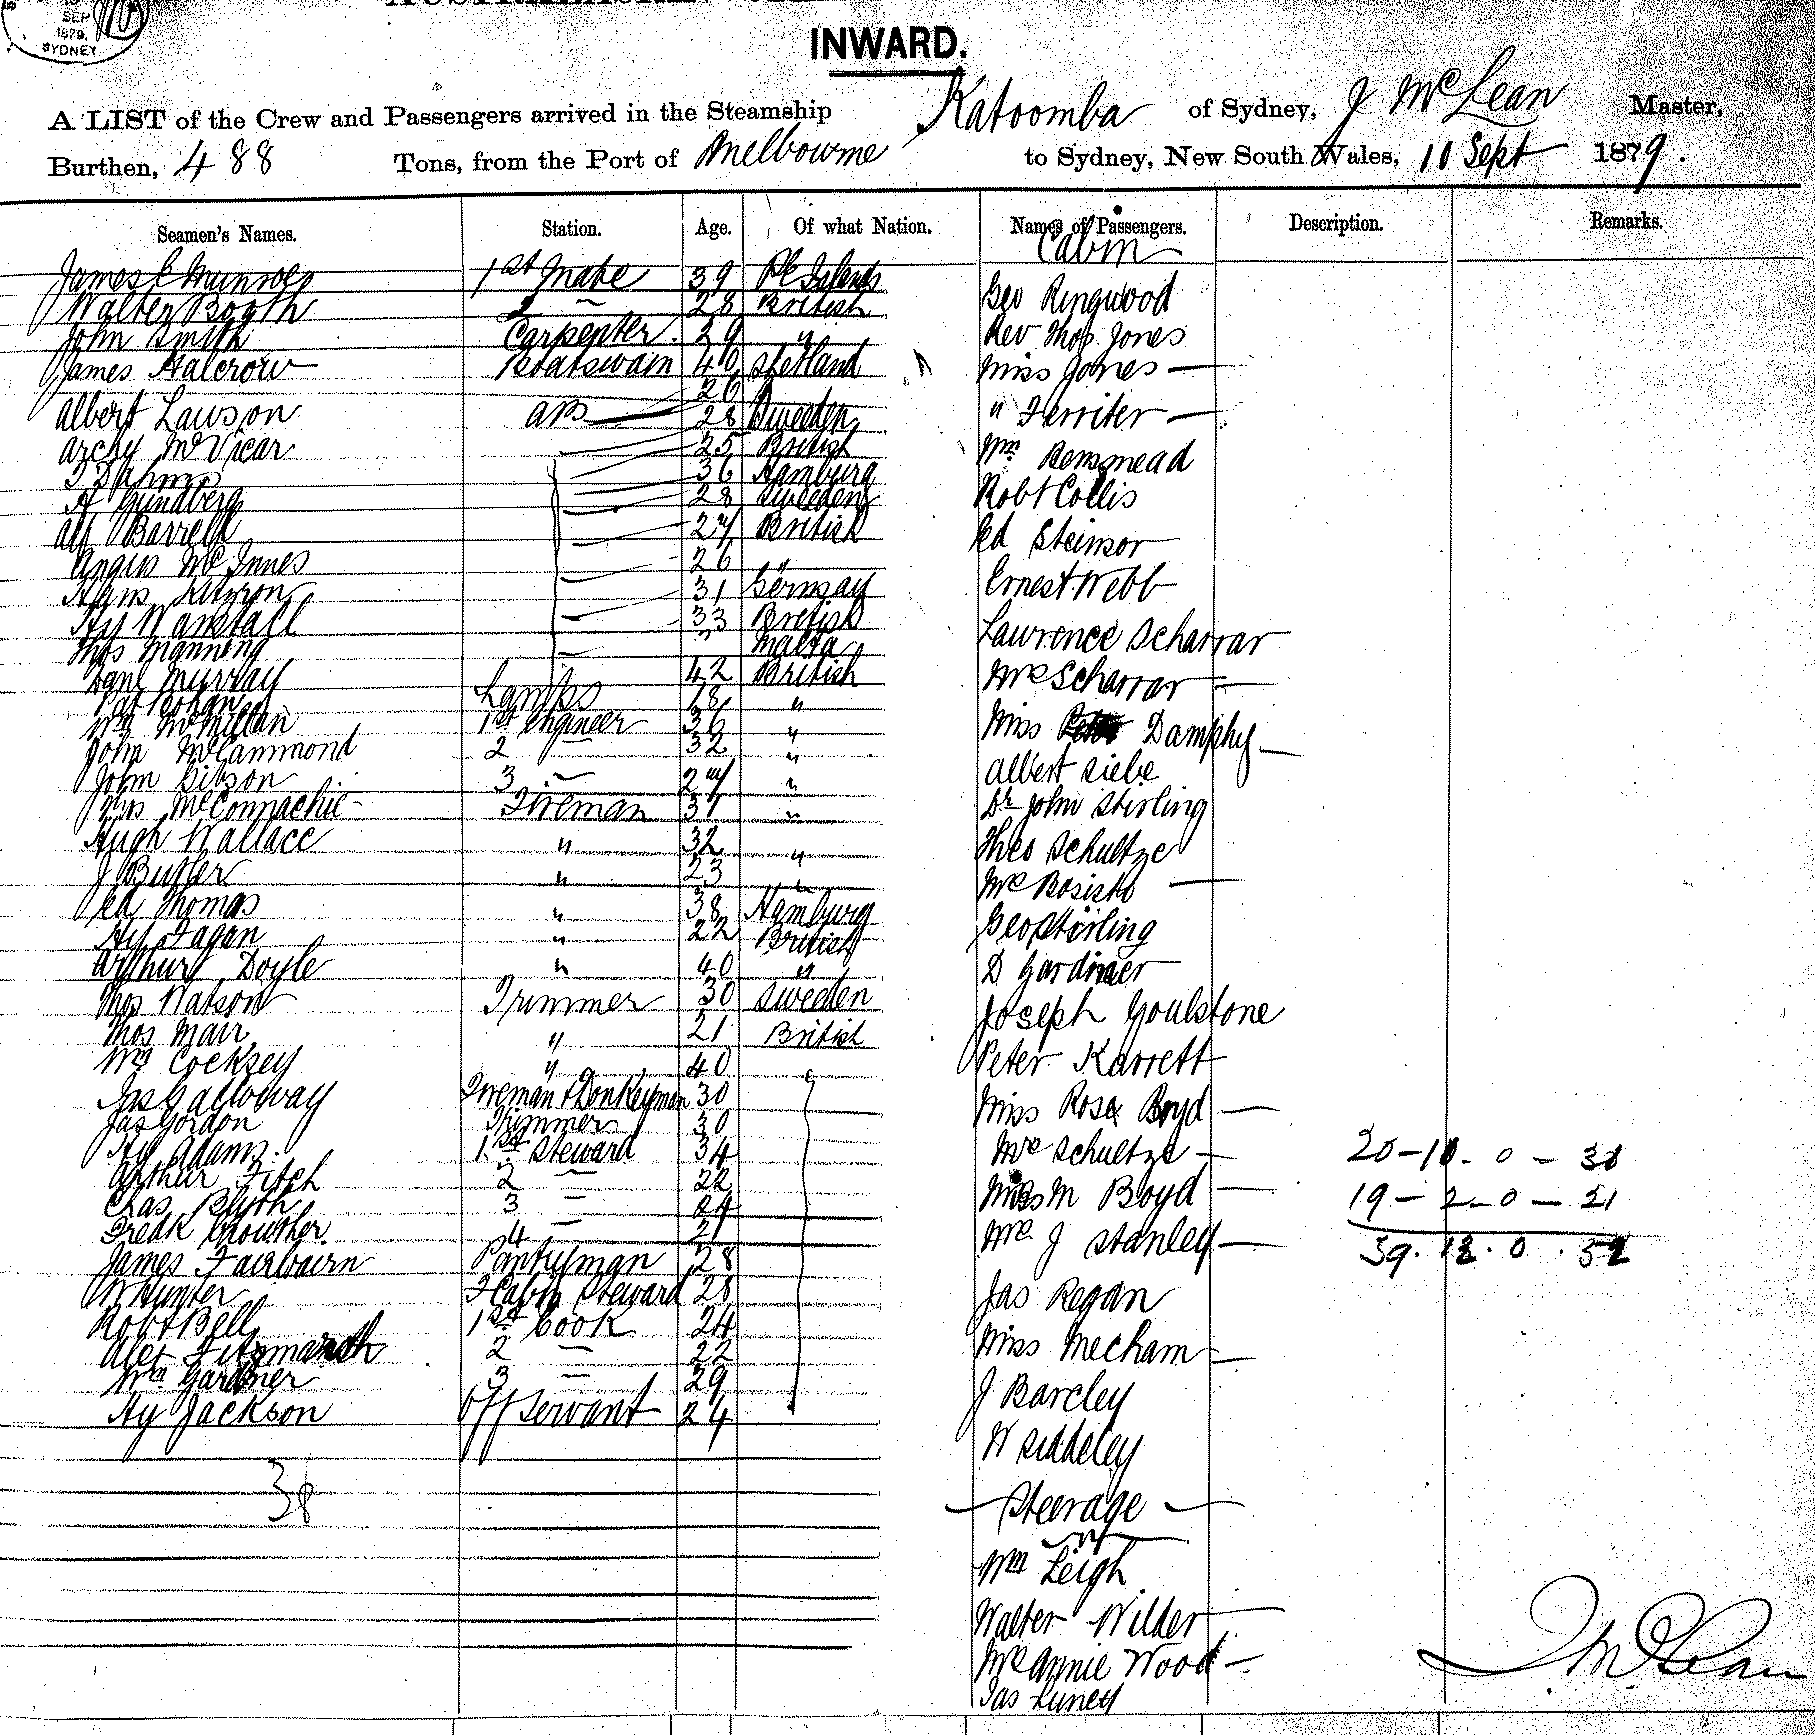 SEP
1879.
SYDNEY
INWARD.
A LIST of the Crew and Passengers arrived in the Steamship Katoomba of Sydney, J McLean Master,
Burthen, 488 Tons, from the Port of Melbourne to Sydney, New South Wales, 10 Sept 1879.
Seamen's Names. Station. Age. Of what Nation. Names of Passengers. Description. Remarks.
Cabin
James C 1st Mate 39
Walter Booth 2 — 28 British
John Smith Carpenter. 29 "
James Halcrow Boatswain 40 Shetland
Albert Lawson AB 28 Sweden
Archy McVicar 25 British
36 Hamburg
28 Sweden
Alf Barrell 27 British
Angus McInnes 26 "
31 Germany
33 British
Thos Manning Malta
Danl Murray 42 British
Lamps 18 "
Wm McMillan 1st Engineer 36 "
John McCammond 2 32 "
John Gibson 3 — 27 "
McConnachie Fireman 31 "
Hugh Wallace " 32 "
J Butler " 23 "
Ed Thomas " 38 Hamburg
Hy Fagan " 22 British
Arthur Doyle " 40 "
Thos Watson Trimmer 30 Sweden
Thos Mair " 21 British
Wm Cocksey " 40
Jas Galloway Fireman & Donkeyman 30
Jas Gordon Trimmer 30
Hy Adams. 1st Steward 34
Arthur Fitch 2 — 22
Chas Blyth 3 — 24
Fredk Crowther. 4 — 21
James Fairbairn Pantryman 28
W Hunter F Cabin Steward 28
Robt Bell 1st Cook 24
Alex 2 — 22
Wm Gardner 3 — 29
Hy Jackson Off Servant 24
38
Geo Ringwood
Rev Thos Jones
Miss Jones —
" Ferriter —
Wm Bemmead
Robt Collis
Ed
Ernest Webb
Lawrence Scharrar
Mrs Scharrar —
Miss Damphy —
Albert Siebe
Dr John Stirling
Theo Schultze
Mrs Bosisto —
Geo Stirling
D Gardiner
Joseph Goulstone
Peter Karrett
Miss Rosa Boyd —
Mrs Schultze —
Miss M Boyd —
Mrs J Stanley —
Jas Regan
Miss Mecham —
J Barcley
W Siddeley
— Steerage —
Wm Leigh
Walter Wilder
Mrs Annie Wood —
Jas Luney
20 – 10 - 0 – 30
19 – 2 - 0 – 21
39. 12. 0 . 51
J McLean